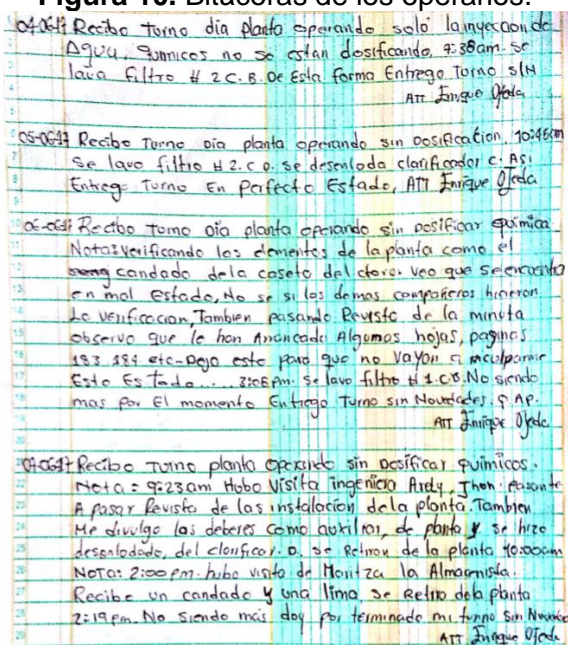 Figura 10. Bitácoras de los operarios.
04-06-17 Recibo Turno dia planta operando solo la inyeccion de
Agua, Quimicos no se estan dosificando, 9:38am. se
lava Filtro # 2 C.B. De Esta forma Entrego Turno S/N
ATT Enrique Ojeda
05-06-17 Recibo Turno Dia planta operando sin Dosificación, 10:46am
Se lavo filtro # 2. C D. se desenloda clarificador C. Asi
Entrego Turno En Perfecto Estado, ATT Enrique Ojeda
06-06-17 Recibo Turno Dia planta operando sin Dosificar Quimica
Nota: verificando los elementos de la planta como el
candado dela caseta del cloro. veo que se encuentra
en mal Estado, No se si los demas compañeros hicieron
Lo verificacion, Tambien pasando Revista de la minuta
observo que le han Arrancado Algunas hojas, paginas
193 194 etc- Dejo esto para que no vayan a inculparme
Esto Es Todo..... 2:08 pm. Se lavo filtro # 1. C.B. No siendo
mas por El momento Entrego Turno sin Novedades. P AP.
ATT Enrique Ojeda
07-0617 Recibo Turno planta operando sin Dosificar Quimicos.
Nota = 9:23am Hobo Visita ingeniera Ardy, Jhon. Pasante
A pasar Revista de las instalación dela planta. Tambien
Me divulgo los deberes como auxiliar, de planta y se hizo
desenlodado, del clarificar. D. se Retiron de la planta 10:00am
NOTA: 2:00 pm. hubo visita de Maritza la Almacenista.
Recibe un candado y una lima. se Retiro dela planta
2:19pm. No siendo más doy por terminado mi turno Sin Novedad
ATT Enrique Ojeda